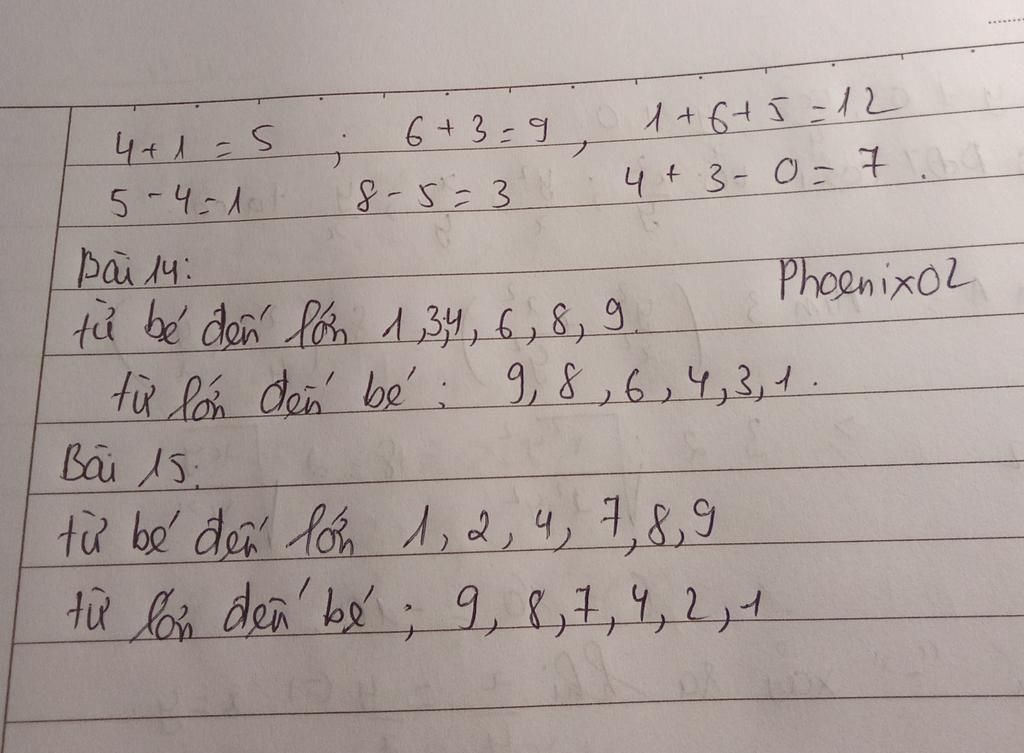 4 + 1 = 5 ; 6 + 3 = 9 , 1 + 6 + 5 = 12
5 - 4 = 1 8 - 5 = 3 4 + 3 - 0 = 7 .
Bài 14:
Phoenix02
từ bé đến lớn 1, 3, 4, 6, 8, 9.
từ lớn đến bé : 9, 8, 6, 4, 3, 1.
Bài 15:
từ bé đến lớn 1, 2, 4, 7, 8, 9
từ lớn đến bé ; 9, 8, 7, 4, 2, 1